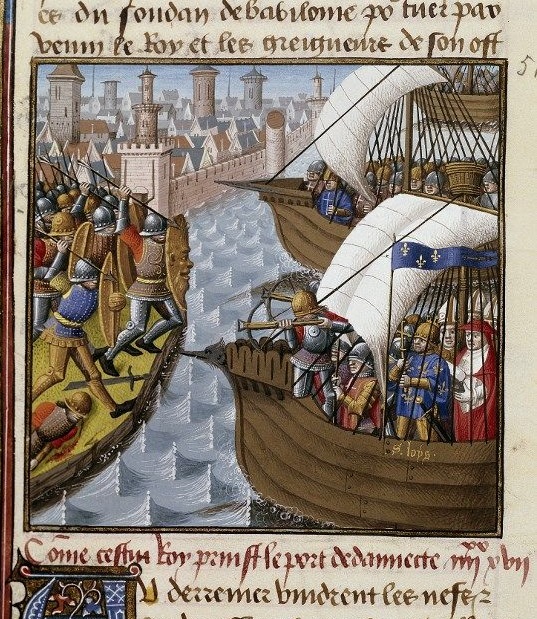 es du soudan de babilonne por tuer par
venin le Roy et les greigneurs de son ost
S. loys.
Come cestui Roy prinst le port de damiecte iiiixx xvii
U derrenier vindrent les nefs